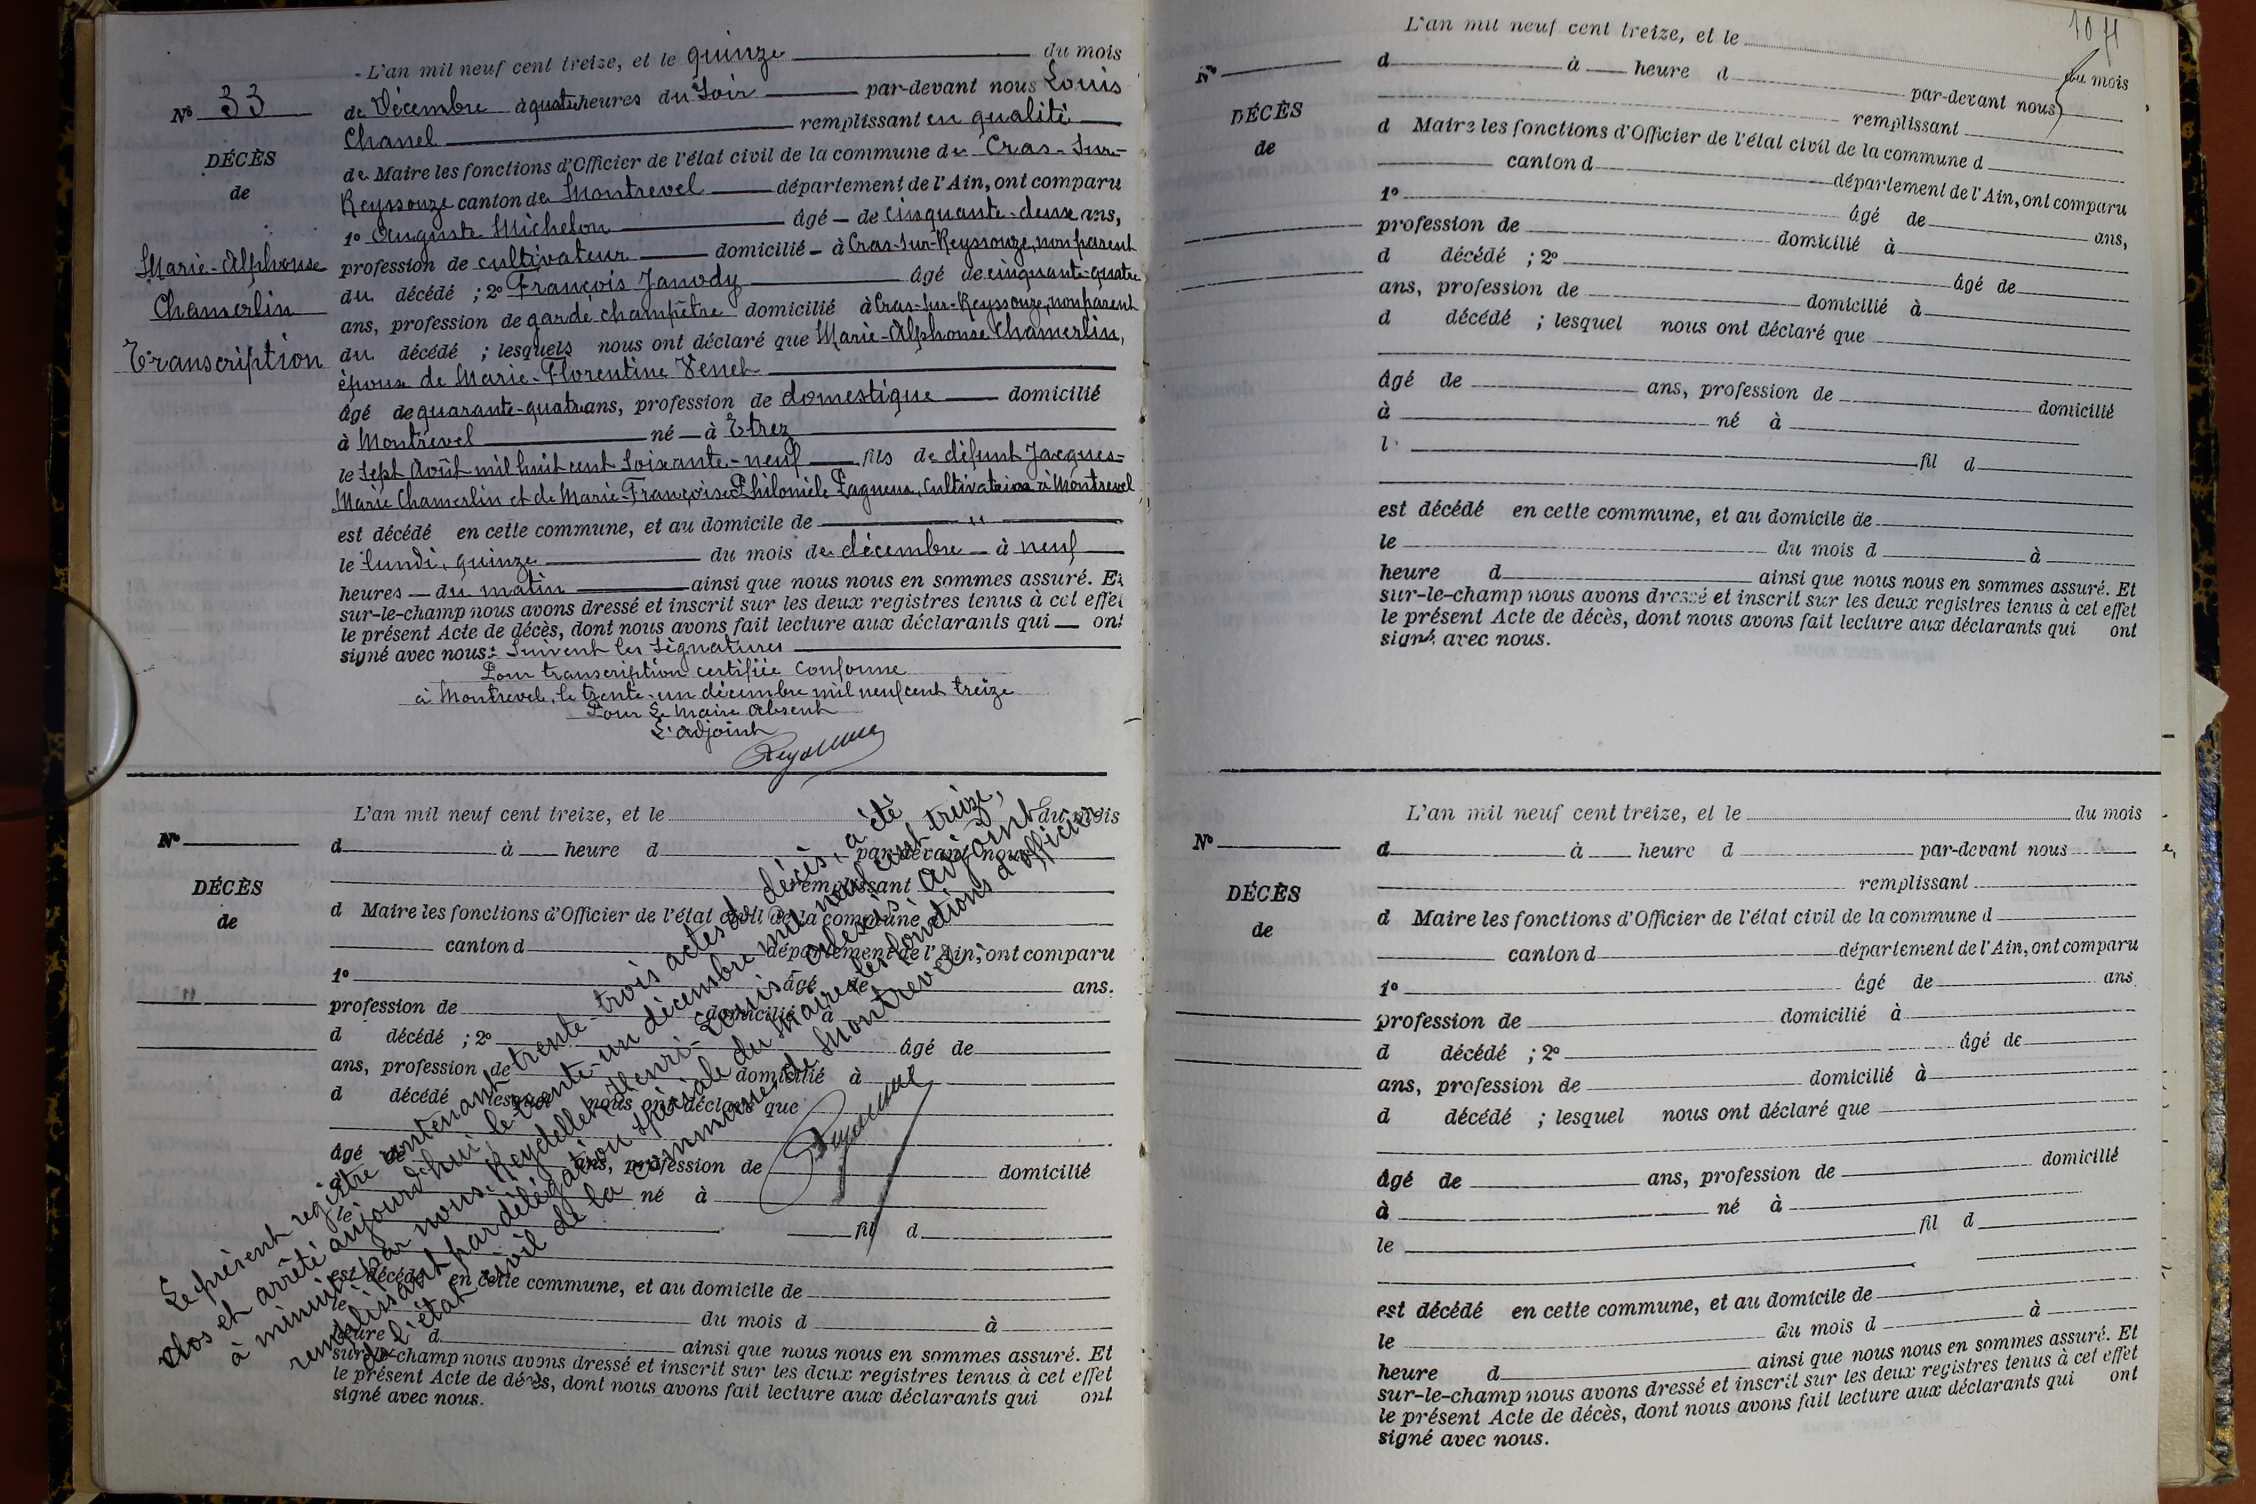 L'an mil neuf cent treize, et le quinze du mois
Nº 33
de Décembre à quatre heures du Soir par-devant nous Louis
Chanel remplissant en qualité
DÉCÈS
de
de Maire les fonctions d'Officier de l'état civil de la commune de Cras-sur-
Reyssouze canton de Montrevel département de l'Ain, ont comparu
1º Auguste Michelon âgé de cinquante-deux ans,
Marie-Alphonse
Chamerlin
Transcription
profession de cultivateur domicilié à Cras-sur-Reyssouze, non parent
du décédé ; 2º François Janody âgé de cinquante-quatre
ans, profession de garde champêtre domicilié à Cras-sur-Reyssouze, non parent
du décédé ; lesquels nous ont déclaré que Marie-Alphonse Chamerlin,
époux de Marie-Florentine
âgé de quarante-quatre ans, profession de domestique domicilié
à Montrevel né à Etrez
le sept Août mil huit cent soixante-neuf fils de défunt Jacques-
Marie Chamerlin et de Marie-Françoise Philomèle Pagneux, cultivatrice à Montrevel
est décédé en cette commune, et au domicile de "
le lundi, quinze du mois de décembre à neuf
heures du matin ainsi que nous nous en sommes assuré. Et
sur-le-champ nous avons dressé et inscrit sur les deux registres tenus à cet effet
le présent Acte de décès, dont nous avons fait lecture aux déclarants qui ont
signé avec nous : Suivent les Signatures
Pour transcription certifiée conforme
à Montrevel, le trente-un décembre mil neuf cent treize
Pour Le Maire absent
L'adjoint
L'an mil neuf cent treize, et le du mois
Nº
d à heure d par-devant nous
remplissant
DÉCÈS
de
d Maire les fonctions d'Officier de l'état civil de la commune
canton d département de l'Ain, ont comparu
1º âgé de ans.
profession de domicilié à
d décédé ; 2º âgé de
ans, profession de domicilié à
d décédé lesquel nous ont déclaré que
âgé de ans, profession de domicilié
à né à
le fil d
est décédé en cette commune, et au domicile de
le du mois d à
heure d ainsi que nous nous en sommes assuré. Et
sur-le-champ nous avons dressé et inscrit sur les deux registres tenus à cet effet
le présent Acte de décès, dont nous avons fait lecture aux déclarants qui ont
signé avec nous.
Le présent registre contenant trente-trois actes de décès, a été
clos et arrêté aujourd'hui le trente-un décembre mil neuf cent treize,
à minuit par nous, Reydellet Henri-Louis-Alexis, Adjoint
remplissant par délégation spéciale du Maire les fonctions d'officier
de l'état civil de la commune de Montrevel.
L'an mil neuf cent treize, et le du mois
Nº
d à heure d par-devant nous
remplissant
DÉCÈS
de
d Maire les fonctions d'Officier de l'état civil de la commune d
canton d département de l'Ain, ont comparu
1º âgé de ans,
profession de domicilié à
d décédé ; 2º âgé de
ans, profession de domicilié à
d décédé ; lesquel nous ont déclaré que
âgé de ans, profession de domicilié
à né à
l fil d
est décédé en cette commune, et au domicile de
le du mois d à
heure d ainsi que nous nous en sommes assuré. Et
sur-le-champ nous avons dressé et inscrit sur les deux registres tenus à cet effet
le présent Acte de décès, dont nous avons fait lecture aux déclarants qui ont
signé avec nous.
L'an mil neuf cent treize, et le du mois
Nº
d à heure d par-devant nous
remplissant
DÉCÈS
de
d Maire les fonctions d'Officier de l'état civil de la commune d
canton d département de l'Ain, ont comparu
1º âgé de ans
profession de domicilié à
d décédé ; 2º âgé de
ans, profession de domicilié à
d décédé ; lesquel nous ont déclaré que
âgé de ans, profession de domicilié
à né à
le fil d
est décédé en cette commune, et au domicile de
le du mois d à
heure d ainsi que nous nous en sommes assuré. Et
sur-le-champ nous avons dressé et inscrit sur les deux registres tenus à cet effet
le présent Acte de décès, dont nous avons fait lecture aux déclarants qui ont
signé avec nous.